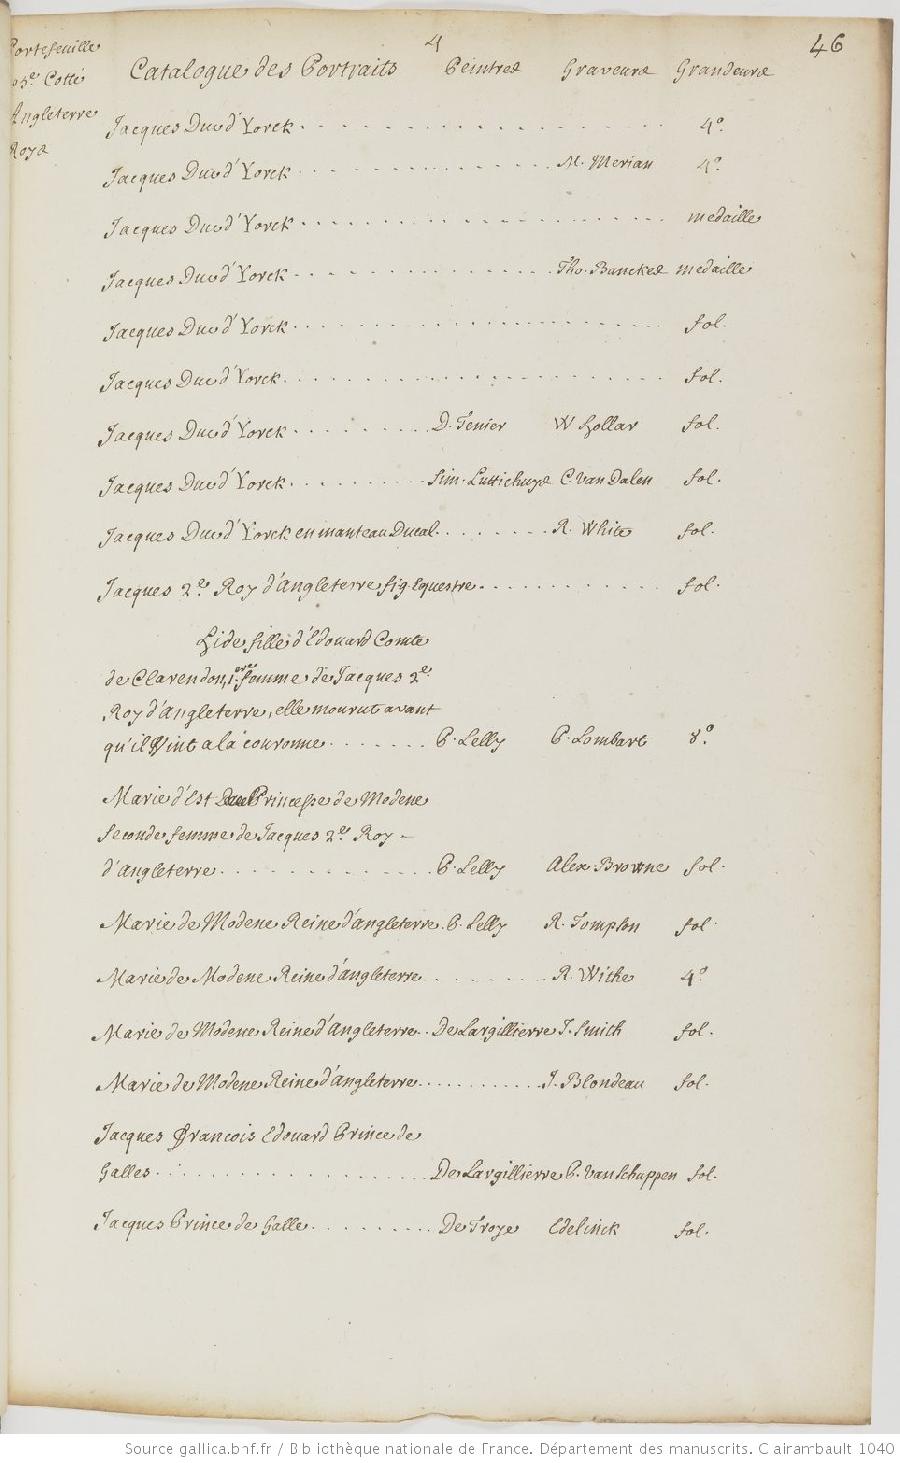 4
46
Portefeuille
5e. Cotté
Angleterre
Roys
Catalogue des Portraits Peintres Graveurs Grandeurs
Jacques Duc d'Yorck 4o.
Jacques Duc d'Yorck M. Merian 4o.
Jacques Duc d'Yorck medaille
Jacques Duc d'Yorck Tho. Bunckes medaille
Jacques Duc d'Yorck fol.
Jacques Duc d'Yorck fol.
Jacques Duc d'Yorck D. Tenier W Hollar fol.
Jacques Duc d'Yorck Sim. Luttichuys C. Van Dalen fol.
Jacques Duc d'Yorck en manteau Ducal R. White fol.
Jacques 2e. Roy d'Angleterre fig. Equestre fol.
Hide fille d'Edouard Comte
de Clarendon, 1ere femme de Jacques 2e.
Roy d'Angleterre, elle mourut avant
qu'il Vint a la couronne P. Lelly P. Lombart 8o.
Marie d'Est Princesse de Modene
Seconde femme de Jacques 2e. Roy
d'Angleterre P. Lelly Alex Browne fol.
Marie de Modene Reine d'angleterre P. Lelly R. Tompson fol
Marie de Modene Reine d'angleterre R. Withe 4o
Marie de Modene Reine d'Angleterre De Largillierre J. Smith fol.
Marie de Modene Reine d'angleterre J. Blondeau fol.
Jacques Francois Edouard Prince de
Galles De Largillierre P. Van Schuppen fol.
Jacques Prince de Galle De Troye Edelinck fol.
Source gallica.bnf.fr / Bibliothèque nationale de France. Département des manuscrits. Clairambault 1040